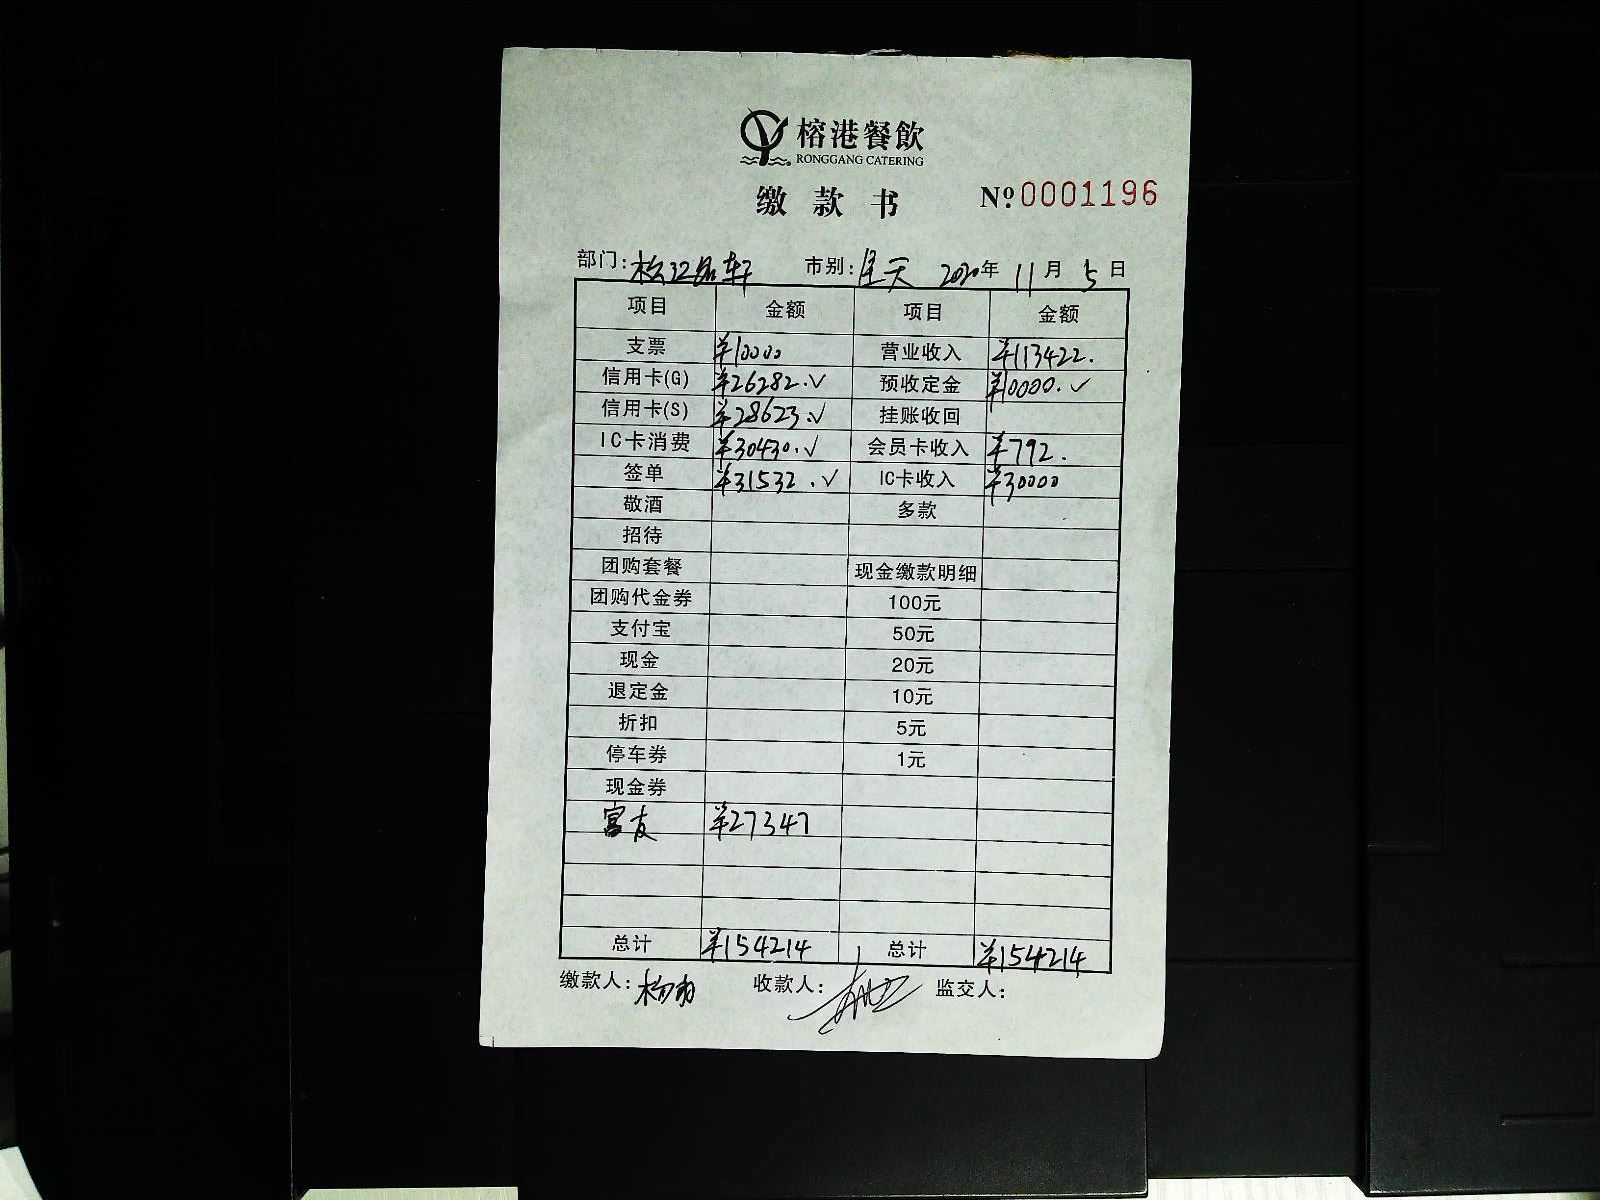 榕港餐飲
RONGGANG CATERING
缴款书 №0001196
部门:松江名轩 市别:全天 2020年11月5日
项目 金额 项目 金额
支票 ¥10000 营业收入 ¥113422.
信用卡(G) ¥26282.√ 预收定金 ¥10000.√
信用卡(S) ¥28623.√ 挂账收回
IC卡消费 ¥30430.√ 会员卡收入 ¥792.
签单 ¥31532.√ IC卡收入 ¥30000
敬酒 多款
招待
团购套餐 现金缴款明细
团购代金券 100元
支付宝 50元
现金 20元
退定金 10元
折扣 5元
停车券 1元
现金券
富友 ¥27347
总计 ¥154214 总计 ¥154214
缴款人: 收款人: 监交人: